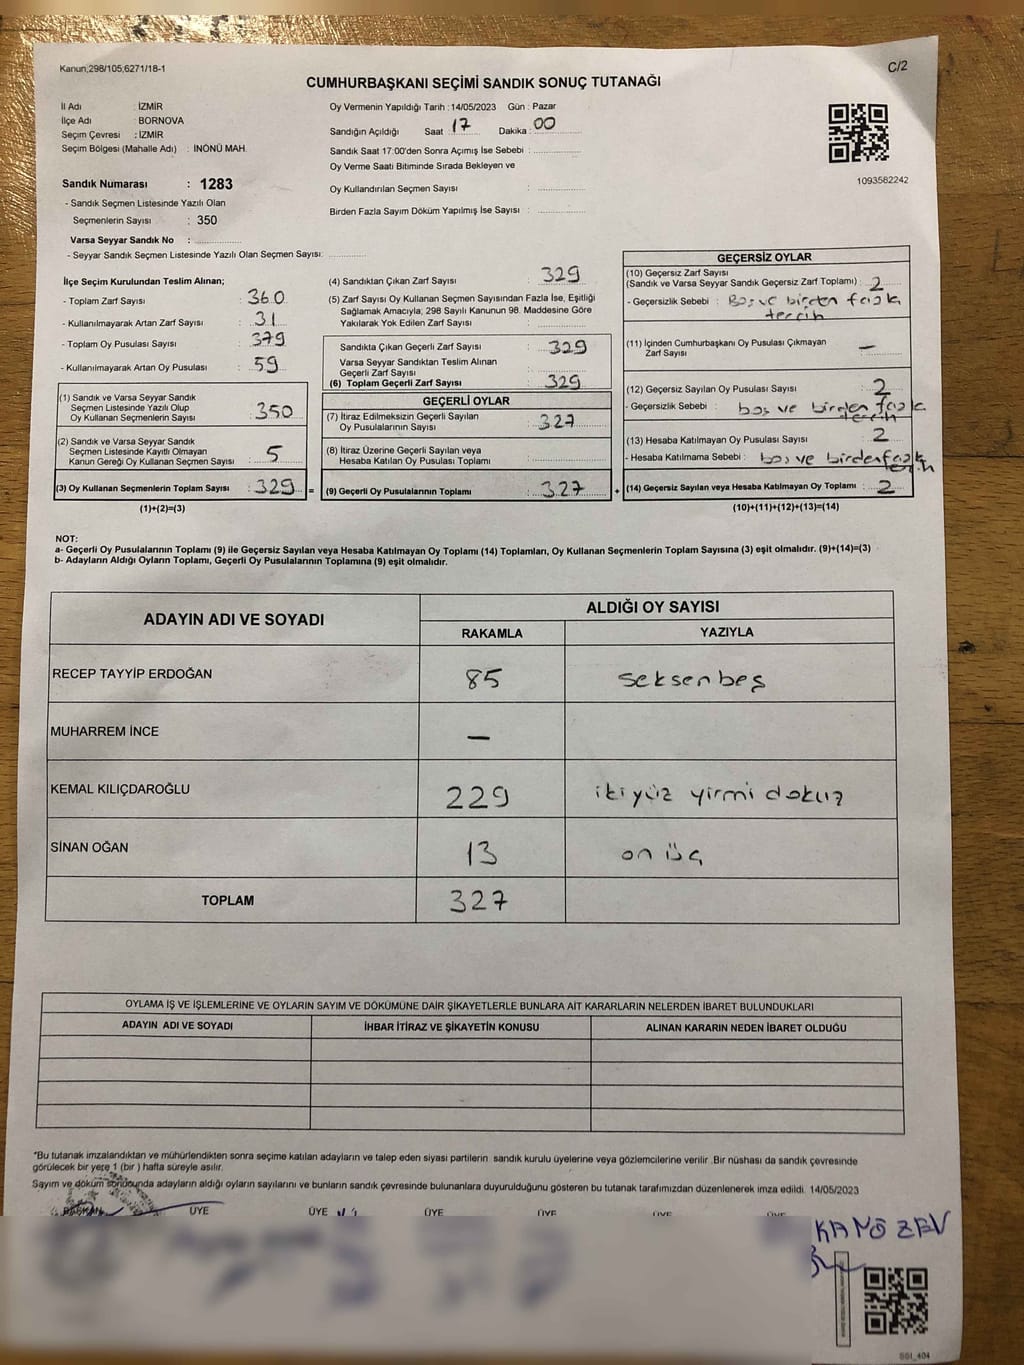 Kanun;298/105;6271/18-1
C/2
CUMHURBAŞKANI SEÇİMİ SANDIK SONUÇ TUTANAĞI
İl Adı : İZMİR
İlçe Adı : BORNOVA
Seçim Çevresi : İZMİR
Seçim Bölgesi (Mahalle Adı) : İNÖNÜ MAH.
Sandık Numarası : 1283
- Sandık Seçmen Listesinde Yazılı Olan
Seçmenlerin Sayısı : 350
Varsa Seyyar Sandık No :
- Seyyar Sandık Seçmen Listesinde Yazılı Olan Seçmen Sayısı:
Oy Vermenin Yapıldığı Tarih : 14/05/2023 Gün : Pazar
Sandığın Açıldığı Saat : 17 Dakika : 00
Sandık Saat 17:00'den Sonra Açımış İse Sebebi :
Oy Verme Saati Bitiminde Sırada Bekleyen ve
Oy Kullandırılan Seçmen Sayısı :
Birden Fazla Sayım Döküm Yapılmış İse Sayısı :
1093582242
İlçe Seçim Kurulundan Teslim Alınan;
- Toplam Zarf Sayısı : 360
- Kullanılmayarak Artan Zarf Sayısı : 31
- Toplam Oy Pusulası Sayısı : 379
- Kullanılmayarak Artan Oy Pusulası : 59
(1) Sandık ve Varsa Seyyar Sandık
Seçmen Listesinde Yazılı Olup
Oy Kullanan Seçmenlerin Sayısı : 350
(2) Sandık ve Varsa Seyyar Sandık
Seçmen Listesinde Kayıtlı Olmayan
Kanun Gereği Oy Kullanan Seçmen Sayısı : 5
(3) Oy Kullanan Seçmenlerin Toplam Sayısı : 329 =
(1)+(2)=(3)
(4) Sandıktan Çıkan Zarf Sayısı : 329
(5) Zarf Sayısı Oy Kullanan Seçmen Sayısından Fazla İse, Eşitliği
Sağlamak Amacıyla; 298 Sayılı Kanunun 98. Maddesine Göre
Yakılarak Yok Edilen Zarf Sayısı :
Sandıkta Çıkan Geçerli Zarf Sayısı : 329
Varsa Seyyar Sandıktan Teslim Alınan
Geçerli Zarf Sayısı :
(6) Toplam Geçerli Zarf Sayısı : 329
GEÇERLİ OYLAR
(7) İtiraz Edilmeksizin Geçerli Sayılan
Oy Pusulalarının Sayısı : 327
(8) İtiraz Üzerine Geçerli Sayılan veya
Hesaba Katılan Oy Pusulası Toplamı :
(9) Geçerli Oy Pusulalarının Toplamı : 327 +
GEÇERSİZ OYLAR
(10) Geçersiz Zarf Sayısı
(Sandık ve Varsa Seyyar Sandık Geçersiz Zarf Toplamı) : 2
- Geçersizlik Sebebi : Boş ve birden fazla
tercih
(11) İçinden Cumhurbaşkanı Oy Pusulası Çıkmayan
Zarf Sayısı : —
(12) Geçersiz Sayılan Oy Pusulası Sayısı : 2
- Geçersizlik Sebebi : boş ve birden fazla
tercih
(13) Hesaba Katılmayan Oy Pusulası Sayısı : 2
- Hesaba Katılmama Sebebi : boş ve birden fazla
tercih
(14) Geçersiz Sayılan veya Hesaba Katılmayan Oy Toplamı : 2
(10)+(11)+(12)+(13)=(14)
NOT:
a- Geçerli Oy Pusulalarının Toplamı (9) ile Geçersiz Sayılan veya Hesaba Katılmayan Oy Toplamı (14) Toplamları, Oy Kullanan Seçmenlerin Toplam Sayısına (3) eşit olmalıdır. (9)+(14)=(3)
b- Adayların Aldığı Oyların Toplamı, Geçerli Oy Pusulalarının Toplamına (9) eşit olmalıdır.
ADAYIN ADI VE SOYADI
ALDIĞI OY SAYISI
RAKAMLA YAZIYLA
RECEP TAYYİP ERDOĞAN 85 seksenbeş
MUHARREM İNCE —
KEMAL KILIÇDAROĞLU 229 ikiyüz yirmi dokuz
SİNAN OĞAN 13 on üç
TOPLAM 327
OYLAMA İŞ VE İŞLEMLERİNE VE OYLARIN SAYIM VE DÖKÜMÜNE DAİR ŞİKAYETLERLE BUNLARA AİT KARARLARIN NELERDEN İBARET BULUNDUKLARI
ADAYIN ADI VE SOYADI İHBAR İTİRAZ VE ŞİKAYETİN KONUSU ALINAN KARARIN NEDEN İBARET OLDUĞU
*Bu tutanak imzalandıktan ve mühürlendikten sonra seçime katılan adayların ve talep eden siyasi partilerin sandık kurulu üyelerine veya gözlemcilerine verilir .Bir nüshası da sandık çevresinde
görülecek bir yere 1 (bir ) hafta süreyle asılır.
Sayım ve döküm sonucunda adayların aldığı oyların sayılarını ve bunların sandık çevresinde bulunanlara duyurulduğunu gösteren bu tutanak tarafımızdan düzenlenerek imza edildi. 14/05/2023
BAŞKAN ÜYE ÜYE ÜYE ÜYE ÜYE ÜYE